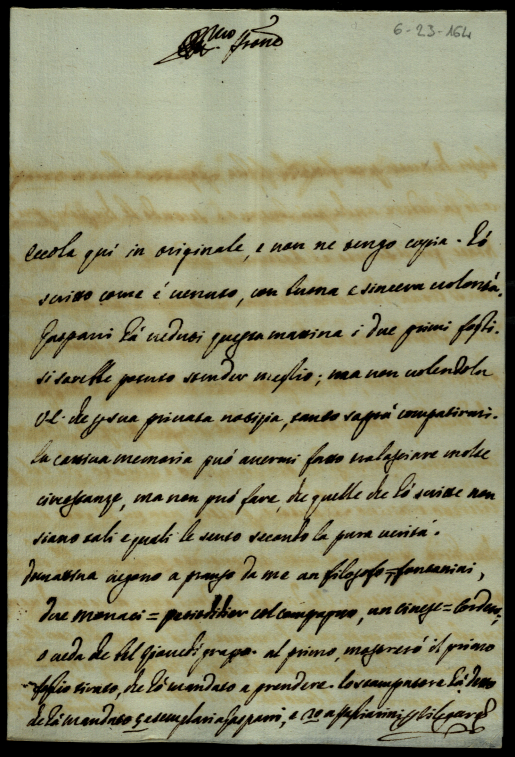 6-23-164
Eccola qui in originale, e non ne tengo copia. Hò
scritto come è venuto, con buona e sincera volontà.
Gaspari hà veduti questa mattina i due primi fogli.
si sarebbe potuto stender meglio; ma non volendola
che p sua privata notizia, tanto saprà compatirmi.
la cattiva memoria può avermi fatto tralasciare molte
circostanze, ma non può fare, che quelle che hò scritte non
siano tali e quali le sento secondo la pura verità.
Domattina vegono a pranzo da me un filosofo = fontanini,
due monaci = col compagno, un cinese =
o veda che bel Giovedì grasso. al primo, mostrerò il primo
foglio tirato, che hò mandato a prendere. lo stampatore hà detto
che hà mandato esemplari a Gaspari, e 20 a